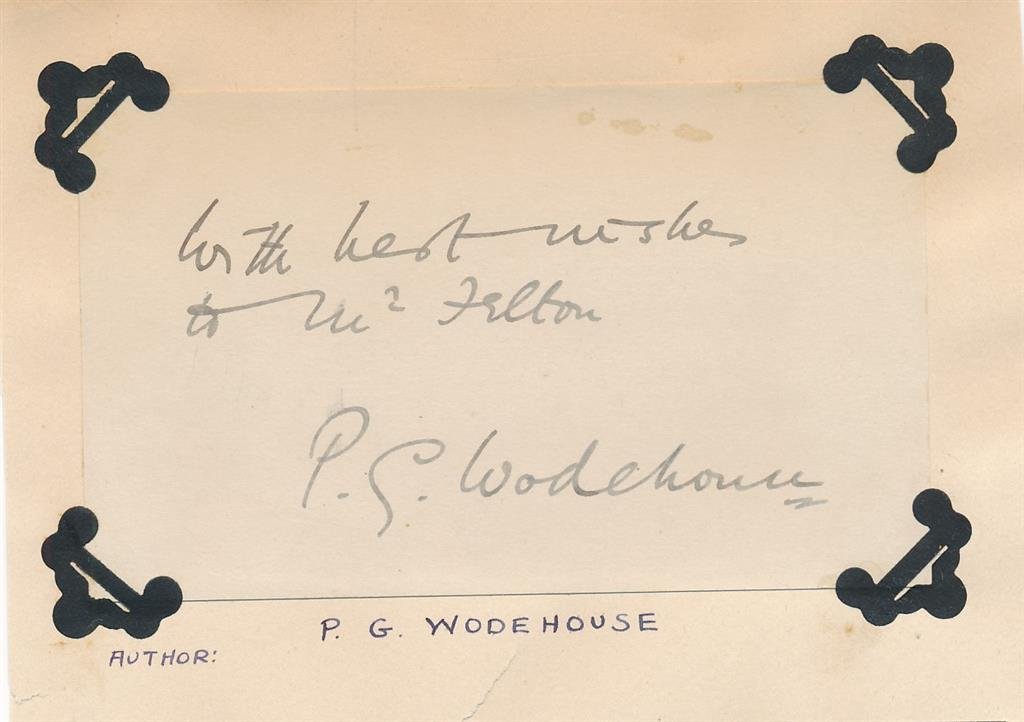 With best wishes
to Mr Felton
P. G. Wodehouse
P. G. WODEHOUSE
AUTHOR: